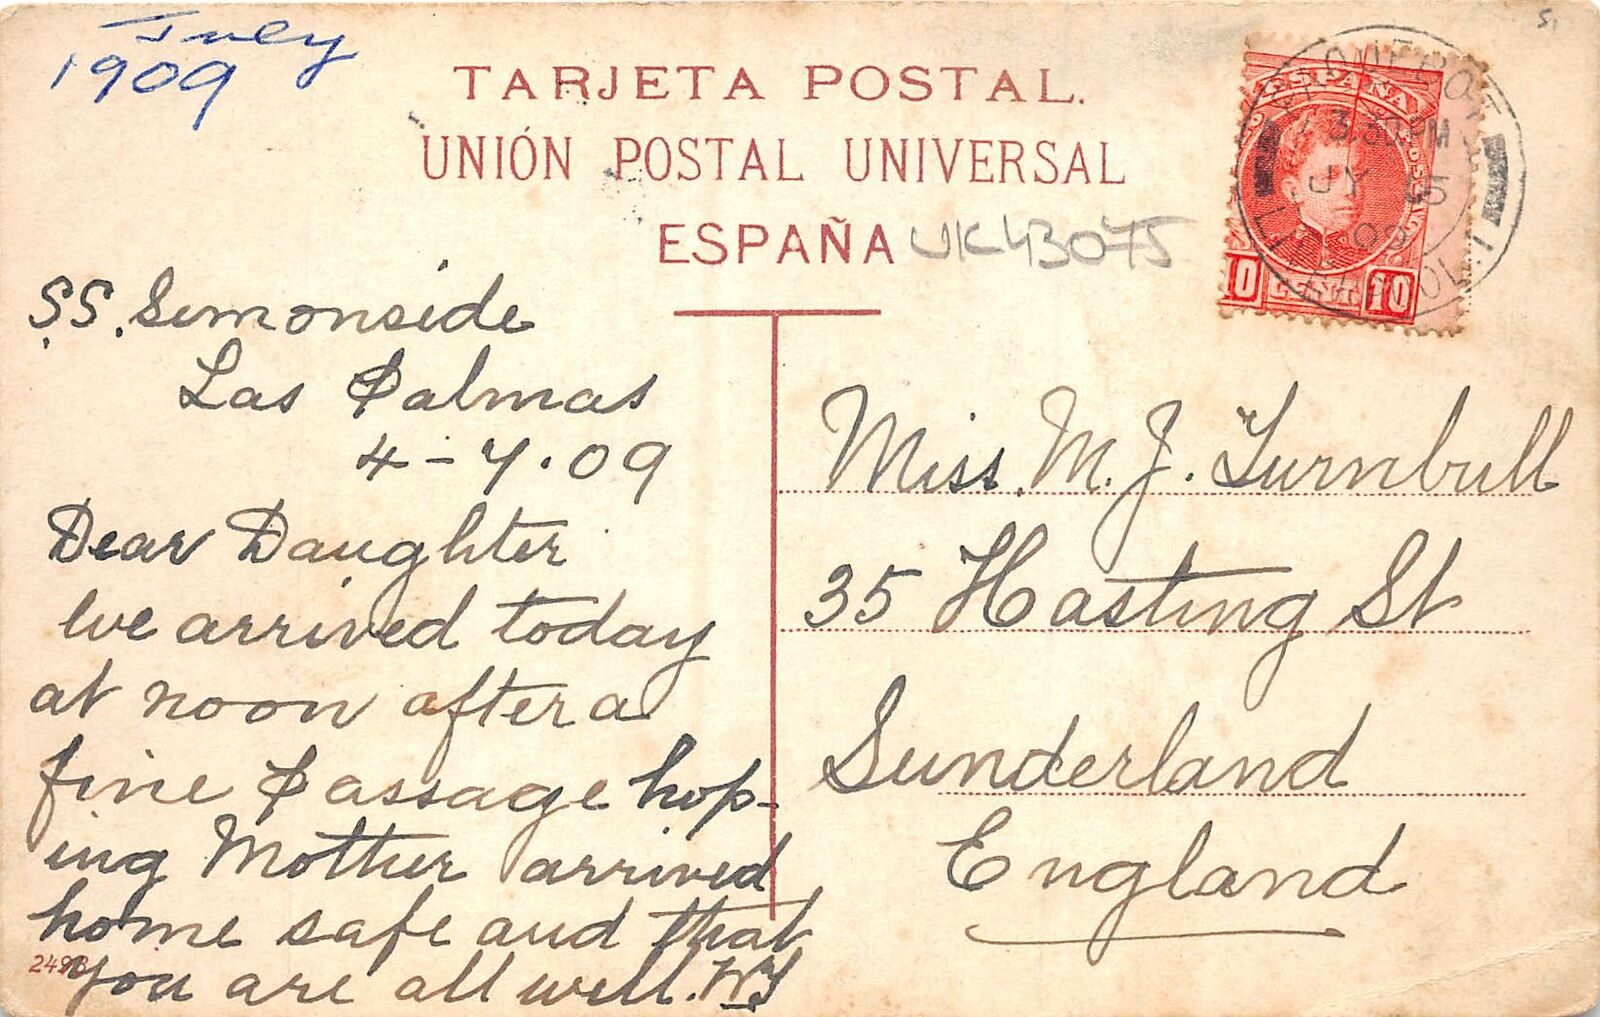 July
1909
TARJETA POSTAL.
UNIÓN POSTAL UNIVERSAL
ESPAÑA
UK43075
PAQUEBOT
3 30 PM
JY 15
09
LIVERPOOL
ESPAÑA
10 CENT 10
S.S. Simonside
Las Palmas
4-7.09
Dear Daughter
we arrived today
at noon after a
fine Passage hop-
ing Mother arrived
home safe and that
you are all well. WT
2498
Miss. M. J. Turnbull
35 Hasting St
Sunderland
England